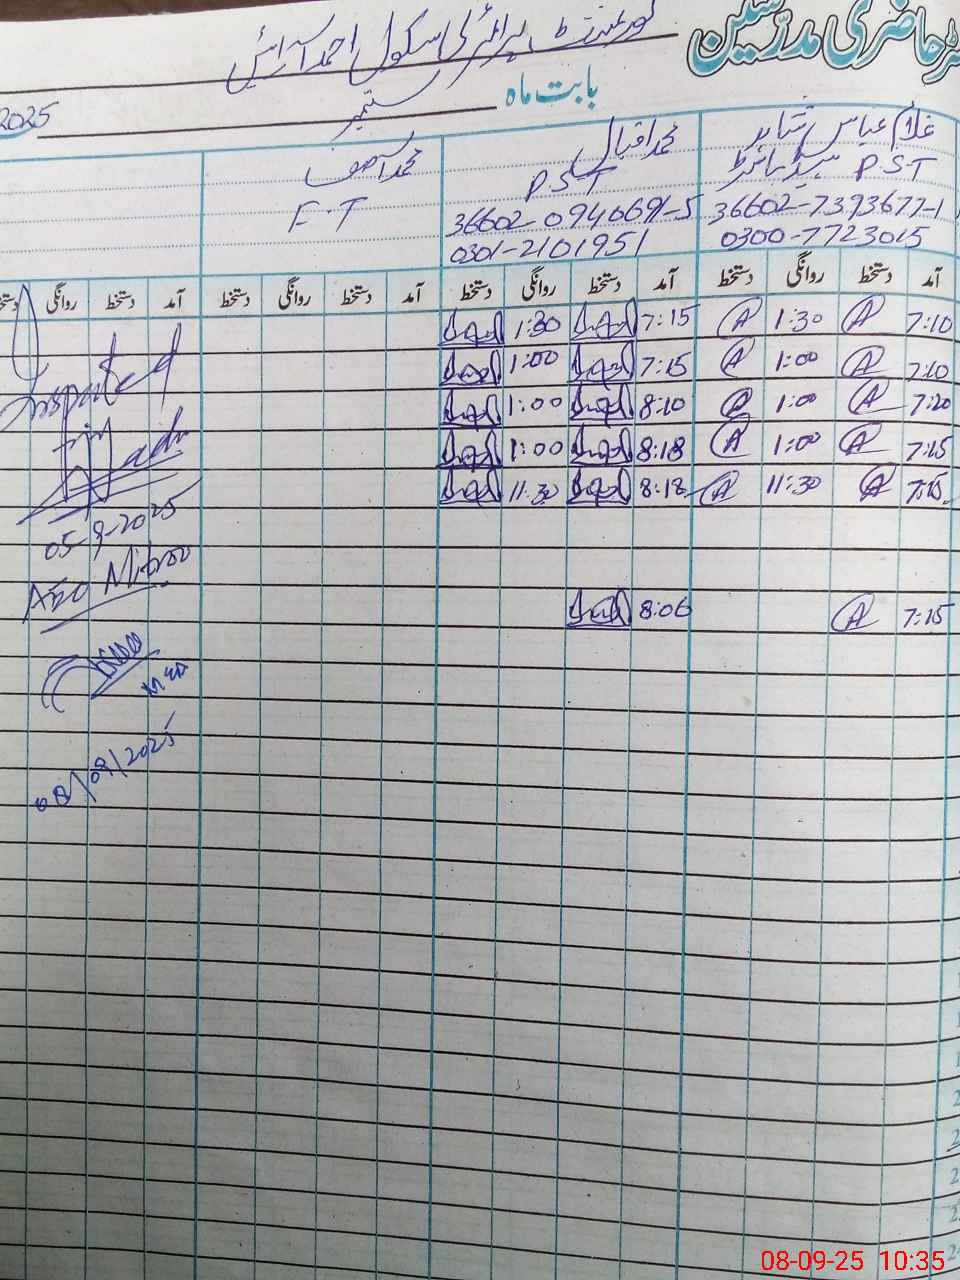 رجسٹر حاضری مدرسین
گورنمنٹ پرائمری سکول احمد آرائیں
بابت ماہ ستمبر 2025
غلام عباس شاہد محمد اقبال محمد آصف
P.S.T ہیڈ ماسٹر P.S.T F.T
36602-7393677-1 36602-0940691-5
0300-7723015 0301-2101951
آمد دستخط روانگی دستخط آمد دستخط روانگی دستخط آمد دستخط روانگی دستخط آمد دستخط روانگی دستخط
7:10 A 1:30 A 7:15 1:30
7:10 A 1:00 A 7:15 1:00
7:20 A 1:00 A 8:10 1:00
7:15 A 1:00 A 8:18 1:00
7:15 A 11:30 A 8:18 11:30
7:15 A 8:06
Inspected
05-9-2025
AEO
08/09/2025
08-09-25 10:35